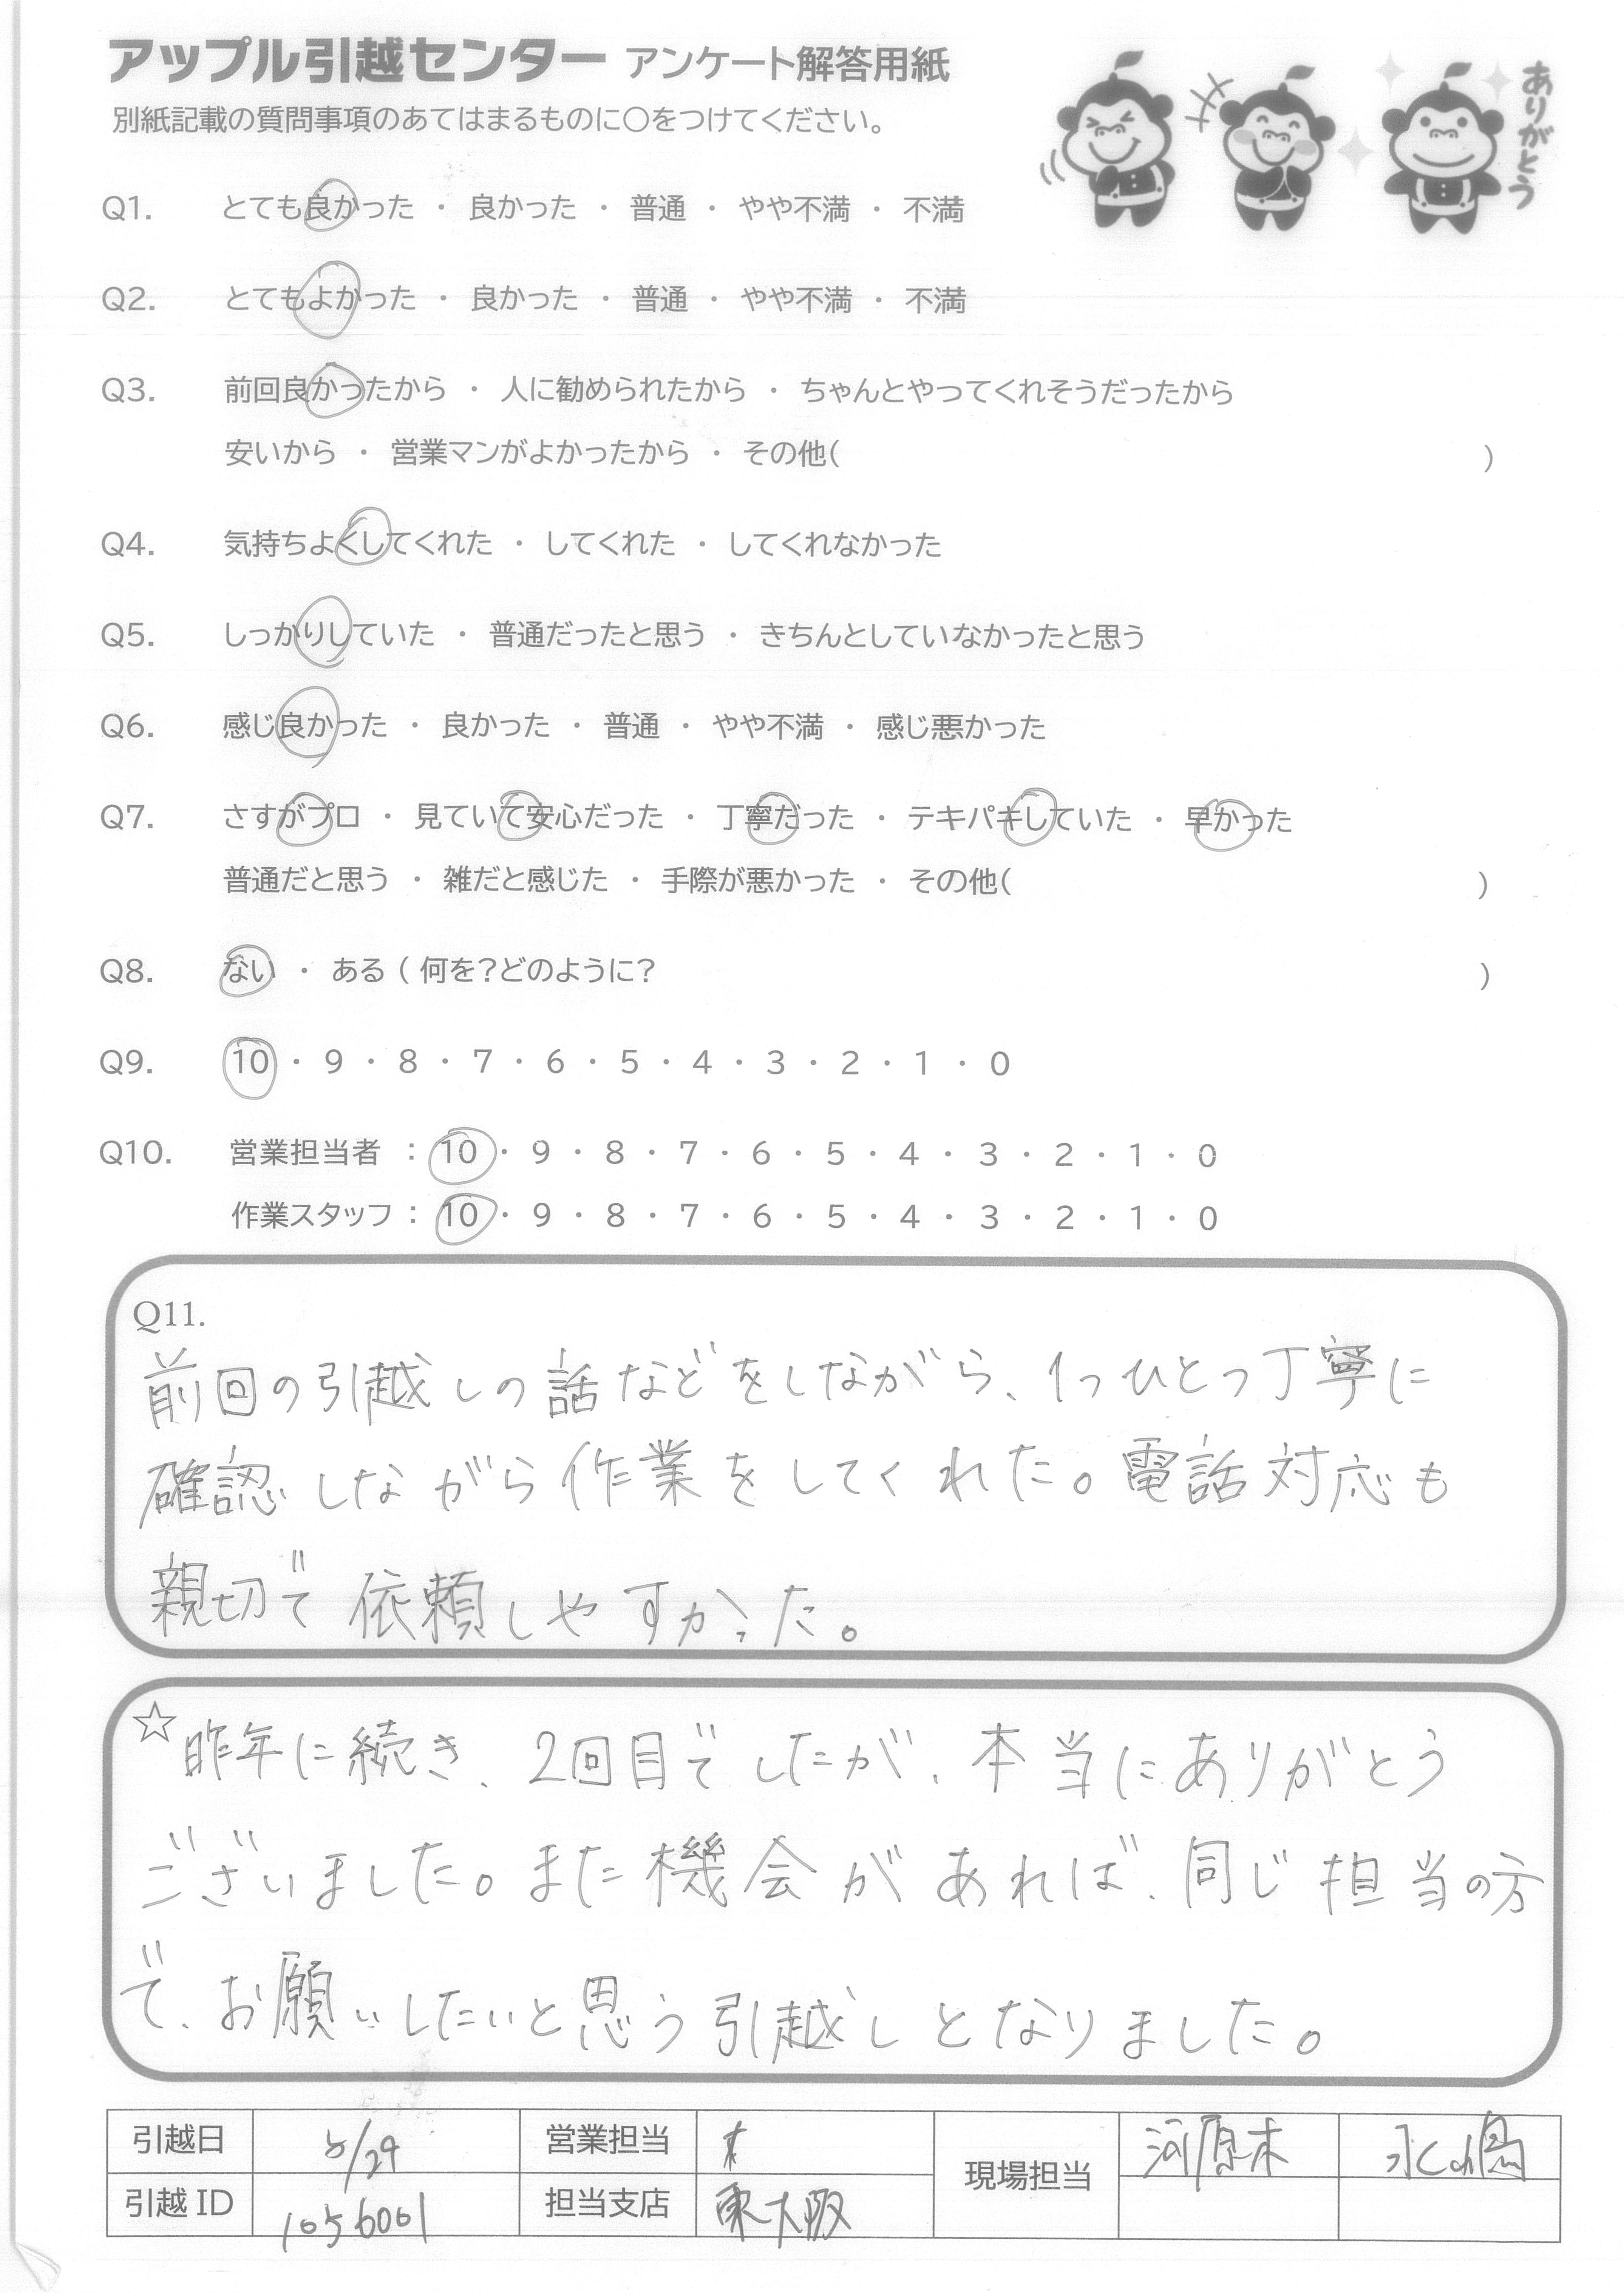 アップル引越センター アンケート解答用紙
別紙記載の質問事項のあてはまるものに○をつけてください。
ありがとう
Q1. とても良かった ・ 良かった ・ 普通 ・ やや不満 ・ 不満
Q2. とてもよかった ・ 良かった ・ 普通 ・ やや不満 ・ 不満
Q3. 前回良かったから ・ 人に勧められたから ・ ちゃんとやってくれそうだったから
安いから ・ 営業マンがよかったから ・ その他( )
Q4. 気持ちよくしてくれた ・ してくれた ・ してくれなかった
Q5. しっかりしていた ・ 普通だったと思う ・ きちんとしていなかったと思う
Q6. 感じ良かった ・ 良かった ・ 普通 ・ やや不満 ・ 感じ悪かった
Q7. さすがプロ ・ 見ていて安心だった ・ 丁寧だった ・ テキパキしていた ・ 早かった
普通だと思う ・ 雑だと感じた ・ 手際が悪かった ・ その他( )
Q8. ない ・ ある ( 何を?どのように? )
Q9. 10 ・ 9 ・ 8 ・ 7 ・ 6 ・ 5 ・ 4 ・ 3 ・ 2 ・ 1 ・ 0
Q10. 営業担当者 : 10 ・ 9 ・ 8 ・ 7 ・ 6 ・ 5 ・ 4 ・ 3 ・ 2 ・ 1 ・ 0
作業スタッフ : 10 ・ 9 ・ 8 ・ 7 ・ 6 ・ 5 ・ 4 ・ 3 ・ 2 ・ 1 ・ 0
Q11.
前回の引越しの話などをしながら、1つひとつ丁寧に
確認しながら作業をしてくれた。電話対応も
親切で依頼しやすかった。
☆昨年に続き、2回目でしたが、本当にありがとう
ございました。また機会があれば、同じ担当の方
で、お願いしたいと思う引越しとなりました。
引越日 5/29 営業担当 現場担当 河原木
引越ID 1056001 担当支店 東大阪